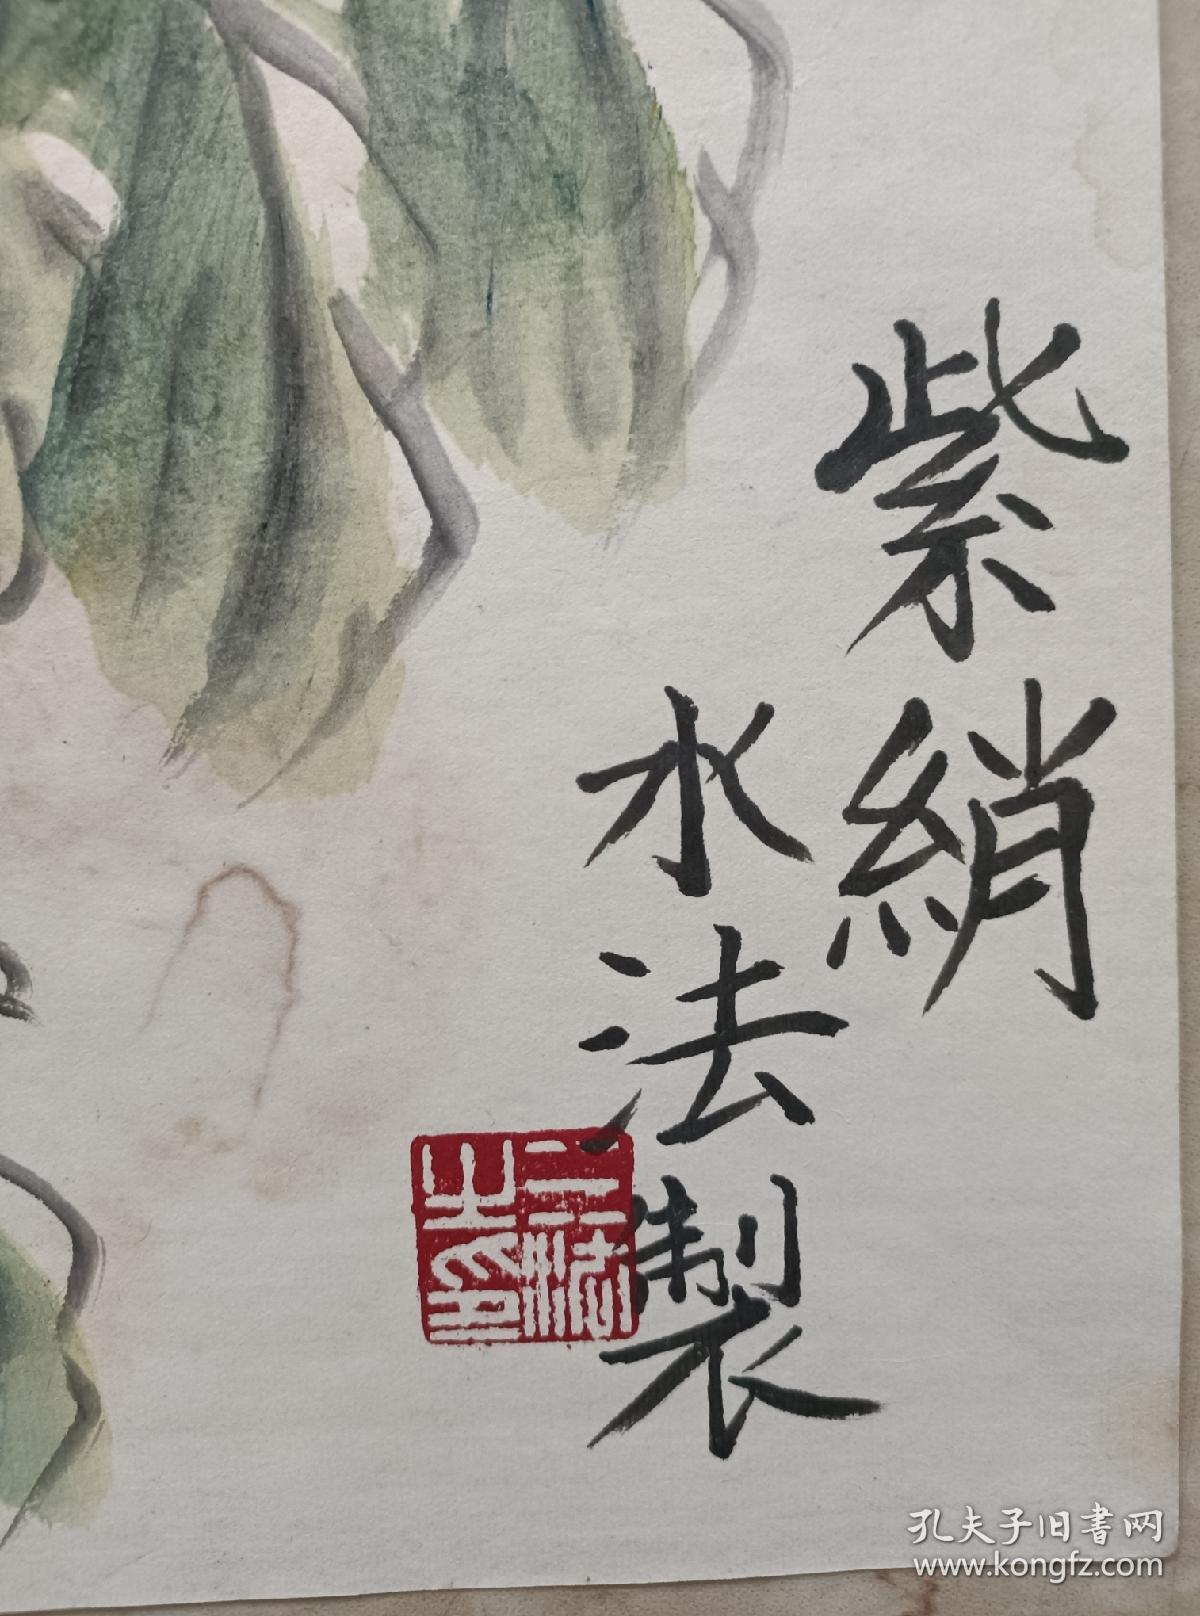 紫綃
水法製
孔夫子旧書网
www.kongfz.com